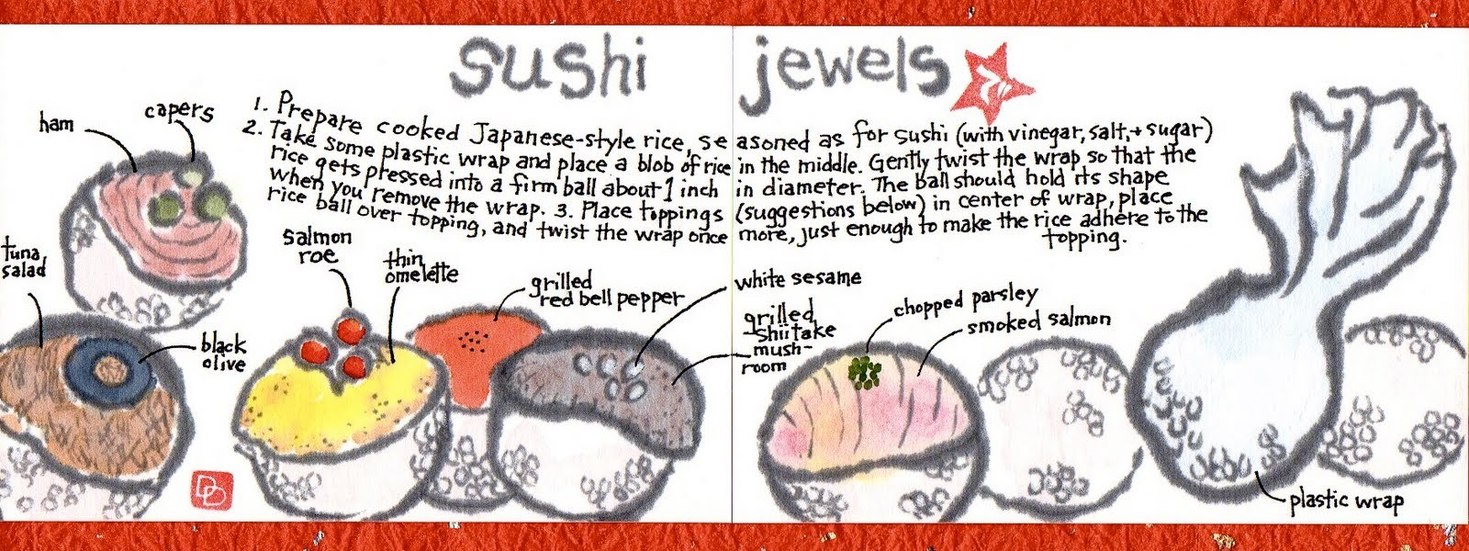 sushi jewels
1. Prepare cooked Japanese-style rice, seasoned as for sushi (with vinegar, salt, + sugar)
2. Take some plastic wrap and place a blob of rice in the middle. Gently twist the wrap, so that the
rice gets pressed into a firm ball about 1 inch in diameter. The ball should hold its shape
when you remove the wrap. 3. Place toppings (suggestions below) in center of wrap, place
rice ball over topping, and twist the wrap once more, just enough to make the rice adhere to the
topping.
ham
capers
tuna
salad
black
olive
salmon
roe
thin
omelette
grilled
red bell pepper
white sesame
grilled
shiitake
mush-
room
chopped parsley
smoked salmon
plastic wrap
DD